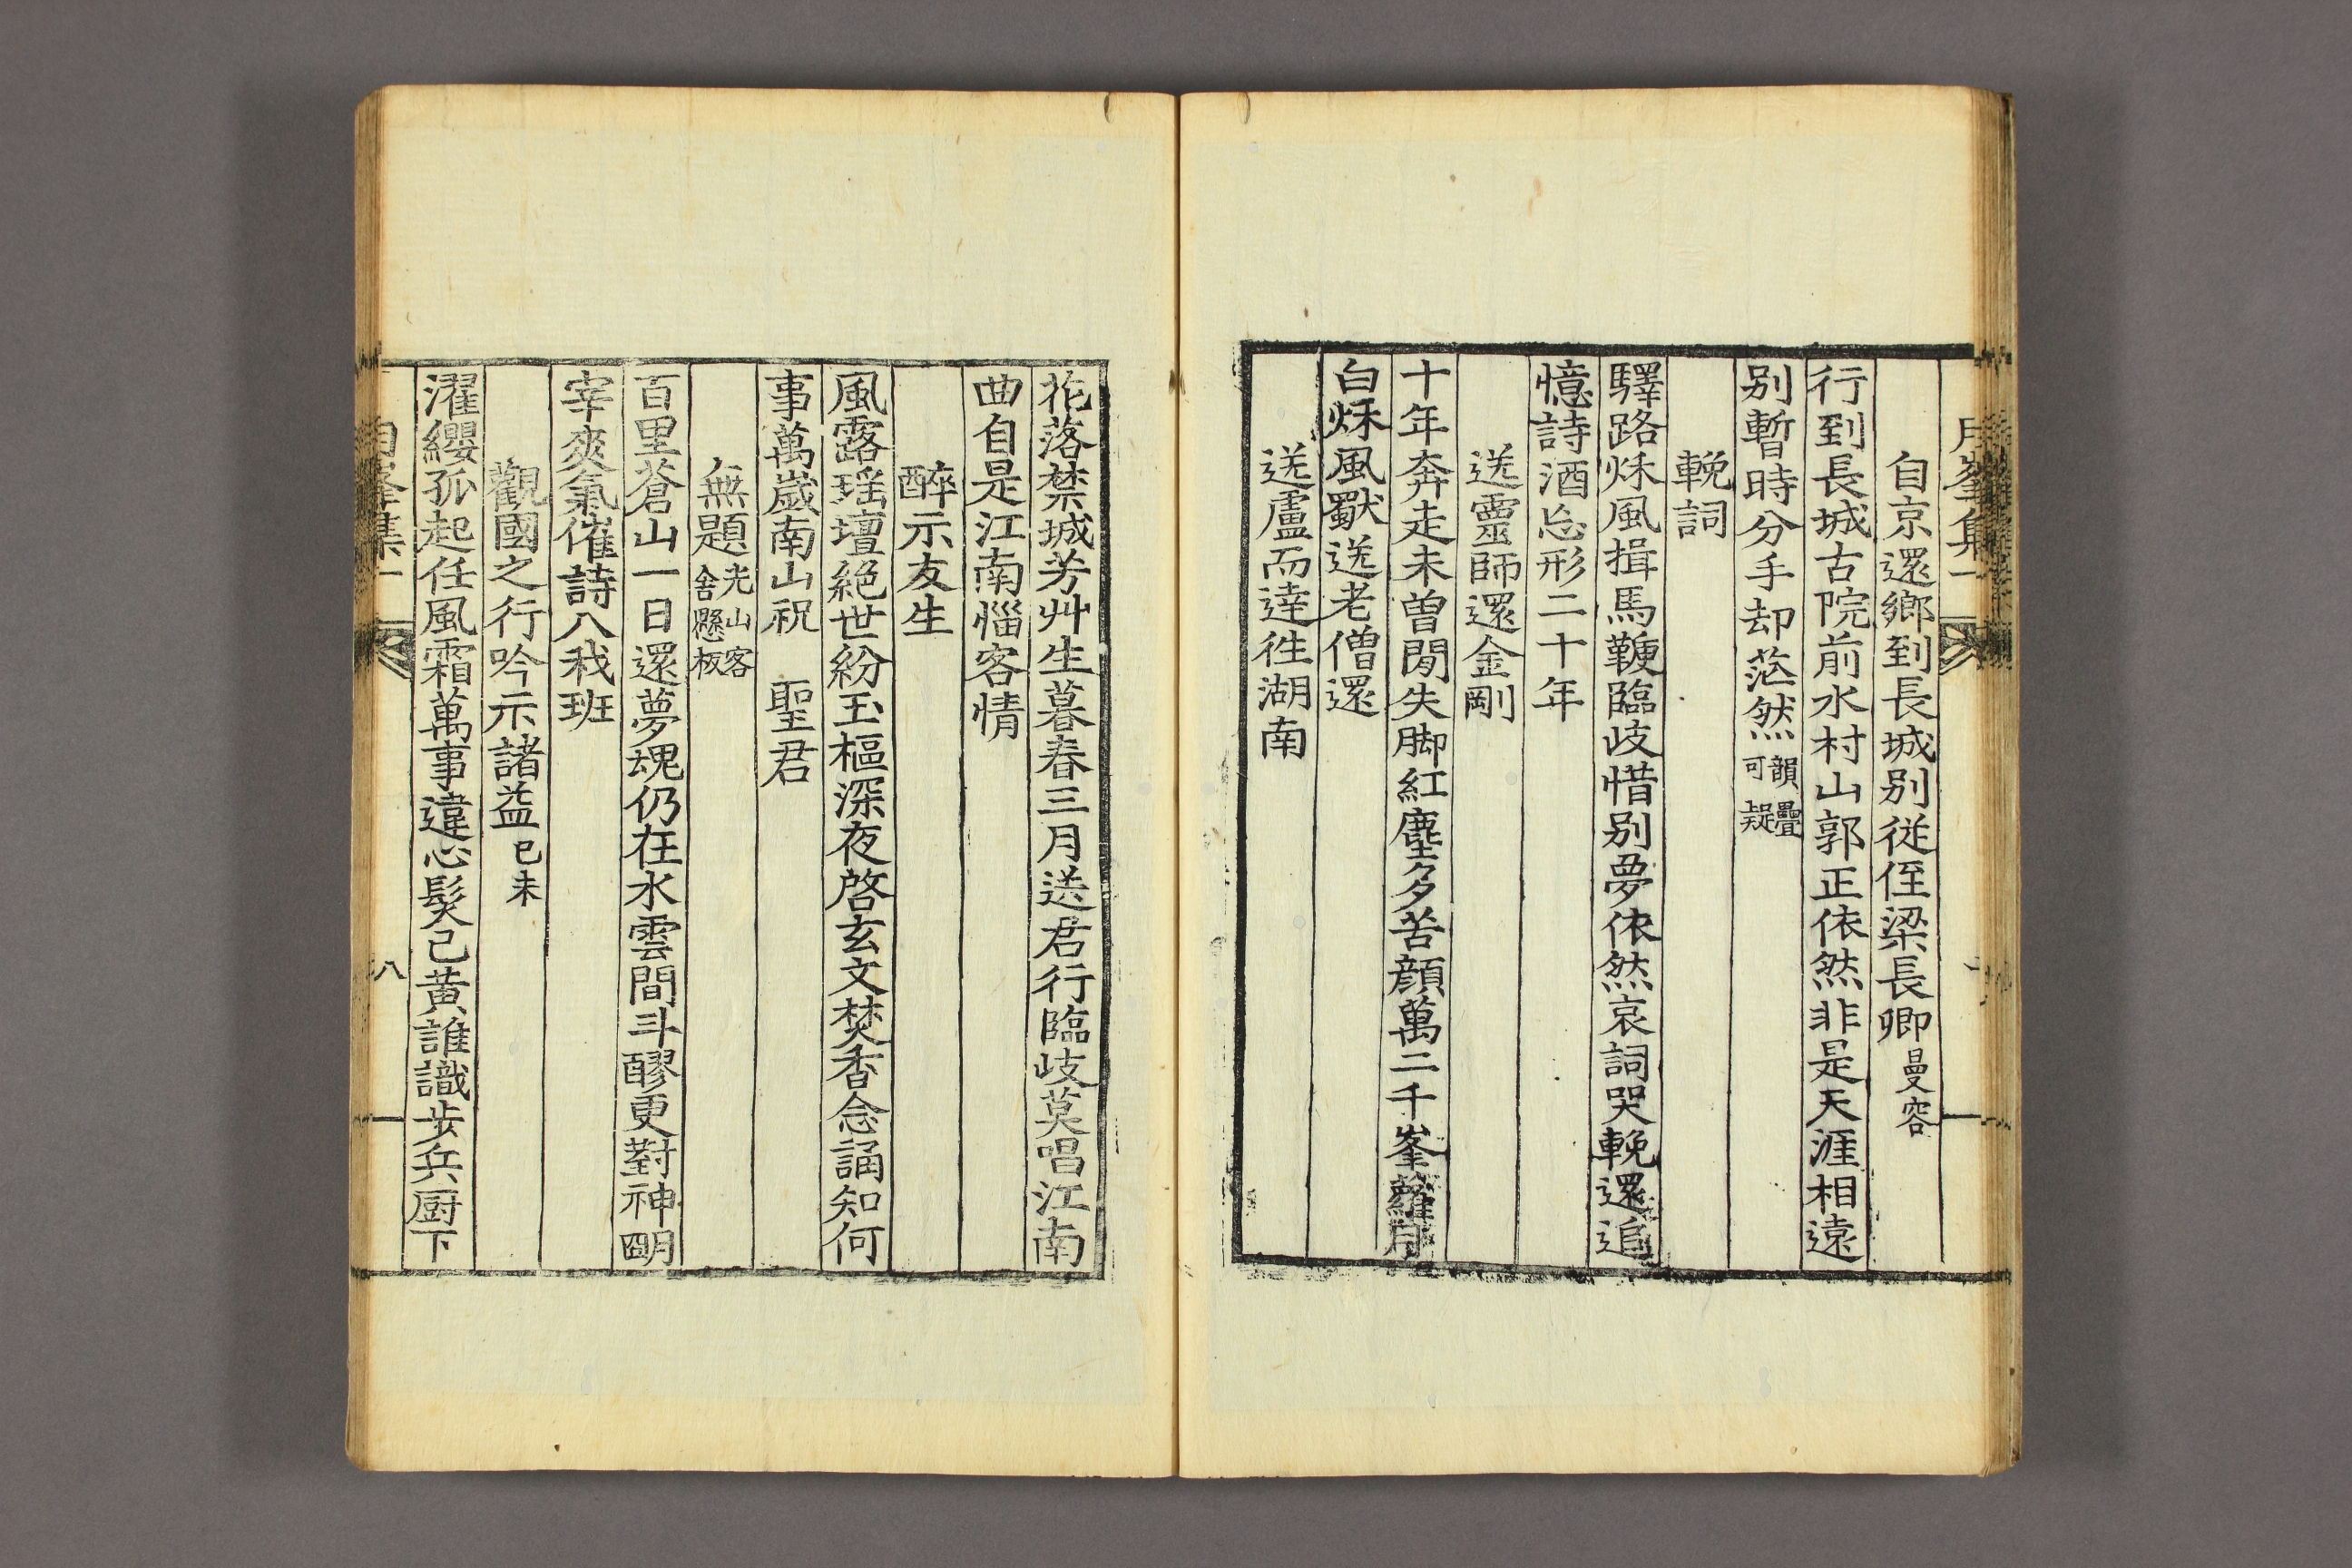 峯集一
自京還鄉到長城别従侄梁長卿曼容
行到長城古院前水村山郭正依然非是天涯相遠
别暫時分手却茫然韻疊可疑
輓詞
驛路秌風揖馬鞭臨歧惜别夢依然哀詞哭輓還追
憶詩酒忘形二十年
送靈師還金剛
十年奔走未曽閒失脚紅塵多苦顔萬二千峯蘿月
白秌風獸送老僧還
送盧而逹徃湖南
花落禁城芳艸生暮春三月送君行臨歧莫唱江南
曲自是江南惱客情
醉示友生
風露瑶壇絕世紛玉樞深夜啓玄文焚香念誦知何
事萬歲南山祝　聖君
無題光山客舍懸板
百里蒼山一日還夢魂仍在水雲間斗醪更對神明
宰爽氣催詩入我班
觀國之行吟示諸益己未
濯纓孤起任風霜萬事違心髮已黄誰識步兵厨下
峯集一
八